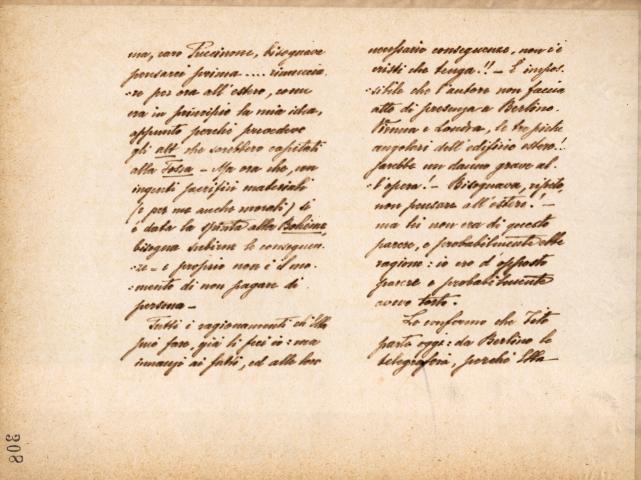 ma, caro Puccinone, bisognava
pensarci prima .... rinuncia
:re per ora all'estero, come
era in principio la mia idea,
appunto perchè prevedevo
gli alt che sarebbero capitati
alla Tosca – Ma ora che, con
ingenti sacrifici materiali
(e per me anche morali) si
è data la spinta alla Bohème,
bisogna subirne le conseguen
:ze – e proprio non è il mo:
:mento di non pagare di
persona –
Tutti i ragionamenti ch'Ella
può fare, già li feci io: ma
innanzi ai fatti, ed alle loro
necessarie conseguenze, non c'è
cristi che tenga!! – È impos:
:sibile che l'autore non faccia
atto di presenza a Berlino.
Vienna e Londra, le tre pietre
angolari dell'edificio estero!.
farebbe un danno grave al:
:l'opera! – Bisognava, ripeto,
non pensare all'estero! –
ma lui non era di questo
parere, e probabilmente ebbe
ragione: io ero d'opposto
parere e probabilmente
avevo torto.
Le confermo che Tito
parte oggi: da Berlino le
telegraferà, perchè Ella
308